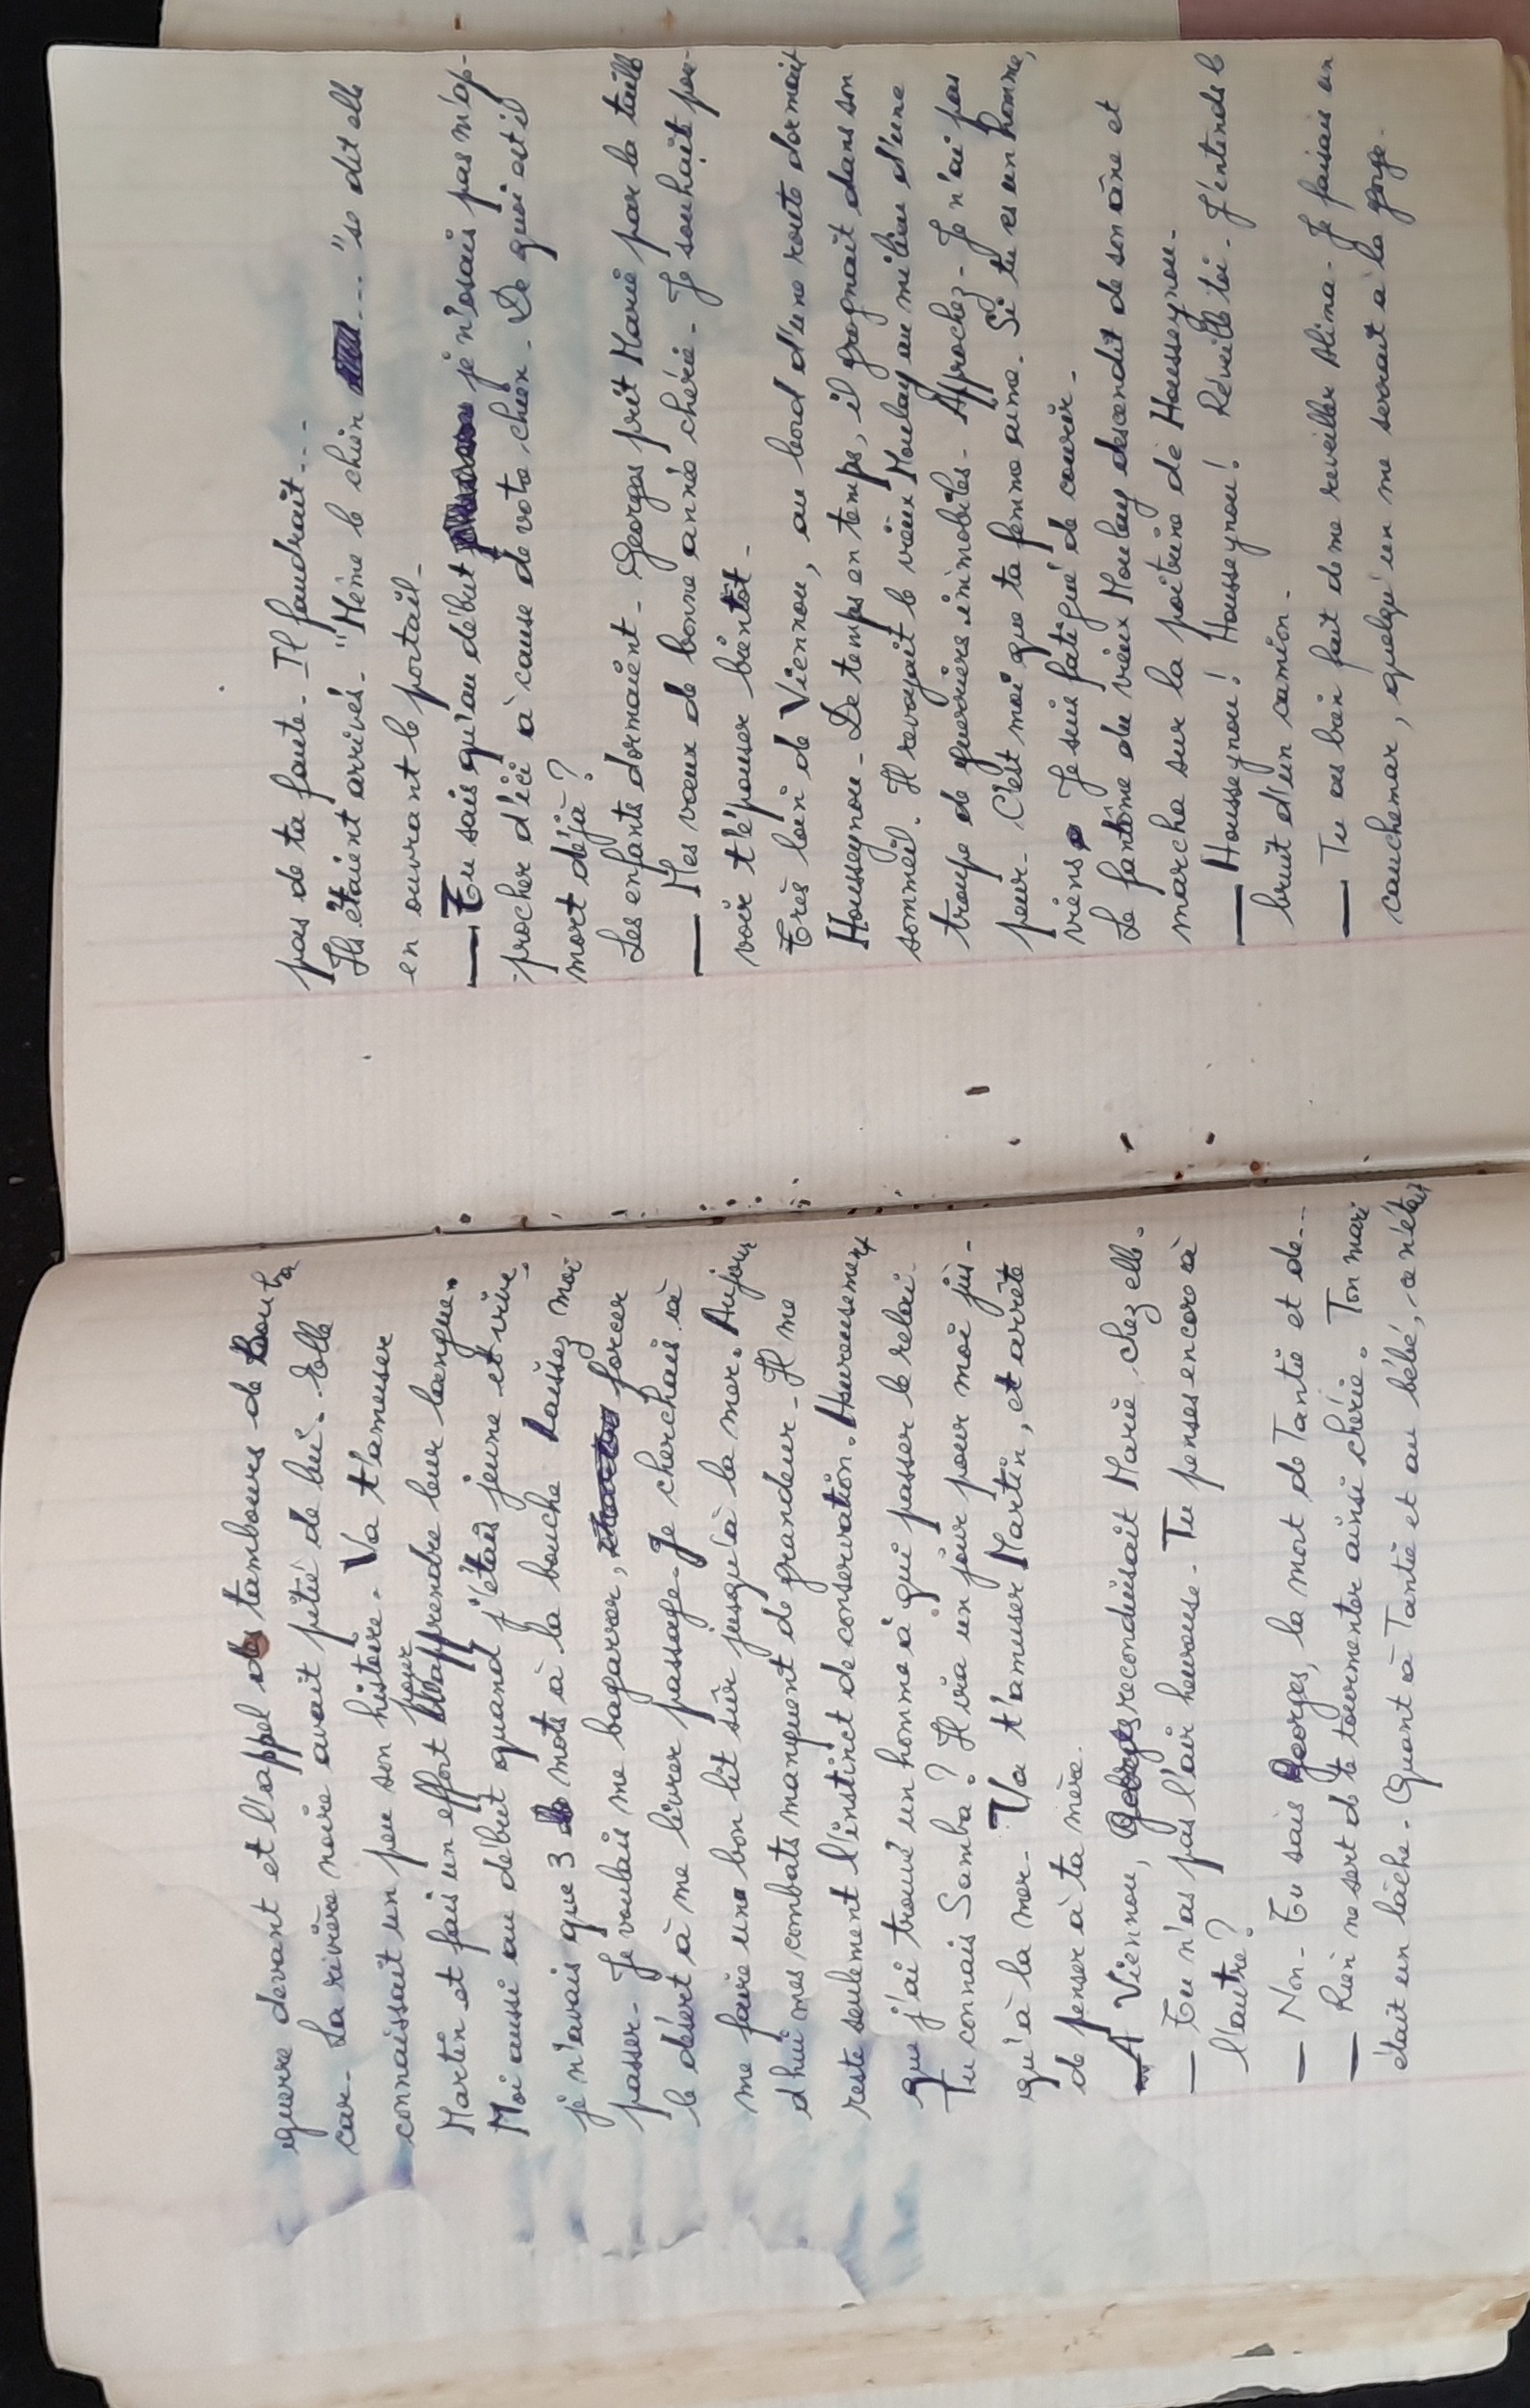 guerre devant et l'appel des tambours de Bouba
car. La rivière noire avait pitié de lui. Elle
connaissait un peu son histoire. Va t'amuser
Martin et fais un effort pour apprendre leur langue.
Moi aussi au début quand j'étais jeune et vive,
je n'avais que 3 mots à la bouche Laissez moi
passer. Je voulais me bagarrer, forcer
le désert à me livrer passage. Je cherchais à
me faire un bon lit sûr jusqu'à la mer. Aujour
d'hui mes combats manquent de grandeur. Il me
reste seulement l'instinct de conservation. Heureusement
que j'ai trouvé un homme à qui passer le relai.
Tu connais Samba? Il ira un jour pour moi jus-
qu'à la mer. Va t'amuser Martin, et arrête
de penser à ta mère.
A Viennou, Georges reconduisait Marie chez elle.
— Tu n'as pas l'air heureuse. Tu penses encore à
l'autre?
— Non. Tu sais Georges, la mort de Tantie et de...
— Rien ne sert de te tourmenter ainsi chérie. Ton mari
était un lâche. Quant à Tantie et au bébé, ce n'était
pas de ta faute. Il faudrait...
Ils étaient arrivés. "Même le chien ..." se dit elle
en ouvrant le portail.
— Tu sais qu'au début je n'osais pas m'ap-
procher d'ici à cause de votre chien. De quoi est il
mort déjà?
Les enfants dormaient. Georges prit Marie par la taille
— Mes vœux de bonne année chérie. Je souhaite pou-
voir t'épouser bientôt.
Très loin de Viennou, au bord d'une route dormait
Housseynou. De temps en temps, il grognait dans son
sommeil. Il revoyait le vieux Moulay au milieu d'une
troupe de guerriers immobiles. Approchez. Je n'ai pas
peur. C'est moi que ta femme aime. Si tu es un homme,
viens Je suis fatigué de courir.
Le fantôme du vieux Moulay descendit de son âne et
marcha sur la poitrine de Housseynou.
— Housseynou! Housseynou! Réveille toi. J'entends le
bruit d'un camion.
— Tu as bien fait de me reveiller Slima. Je faisais un
cauchemar, quelqu'un me serrait à la gorge.